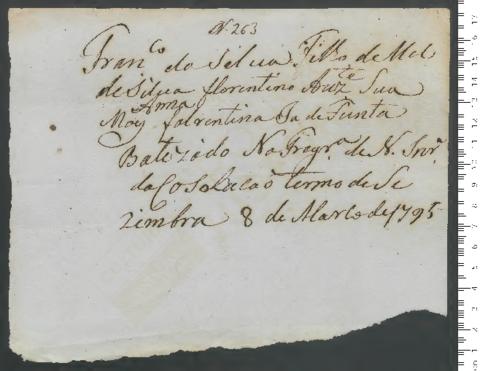 N. 263
Fran.co da Silva Filho de Mel
de Silva florentino Auz.te Sua
Anna
May. falrentina Ja de Funta
Batizado Na Fregr.a de N. Snr.a
da Cosolacaõ termo de Se
zimbra 8 de Marco de 1795